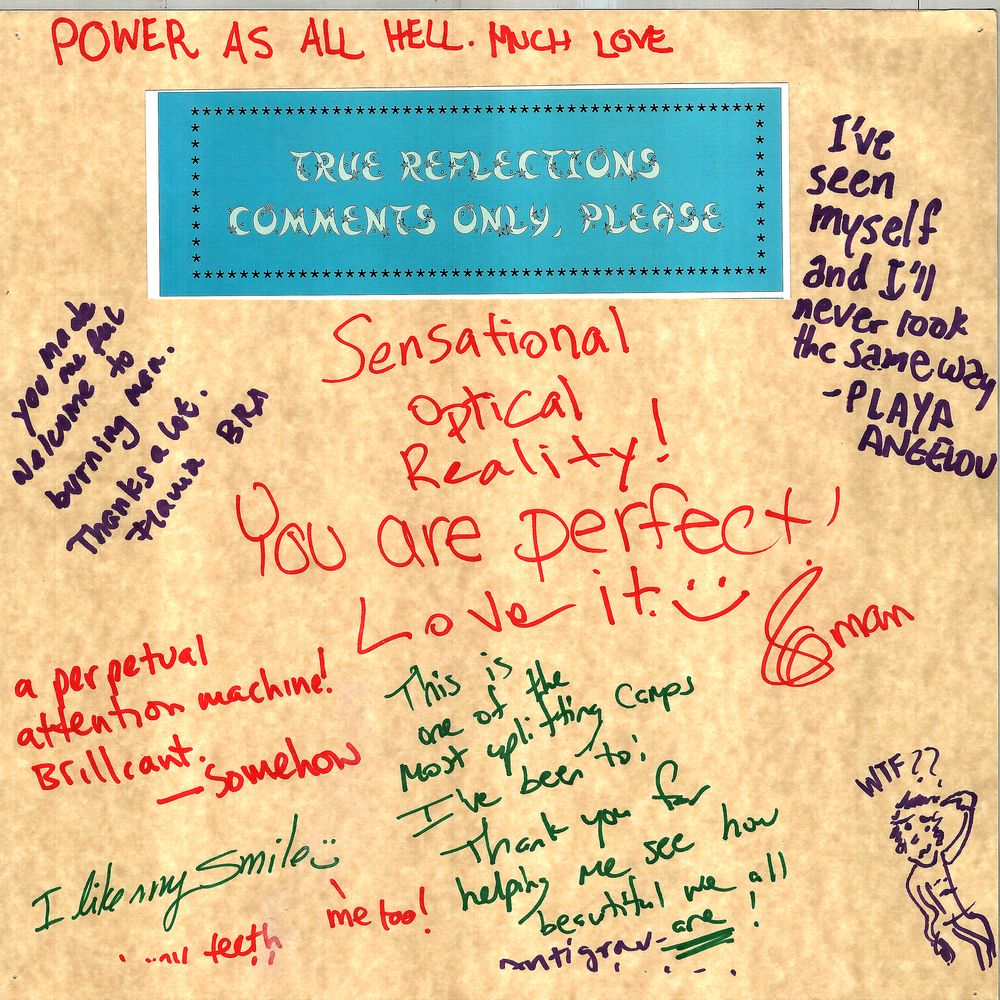 POWER AS ALL HELL. MUCH LOVE
TRUE REFLECTIONS
COMMENTS ONLY, PLEASE
I've
seen
myself
and I'll
never look
the same way
-PLAYA
ANGELOU
you made
me feel
welcome to
burning man.
Thanks a lot.
BRA
Sensational
Optical
Reality!
You are perfect!
Love it. :)
a perpetual
attention machine!
Brillcant.
—somehow
This is
one of the
most uplifting camps
I've been to!
Thank you for
helping me see how
beautiful we all
are!
I like my smile :)
me too!
teeth
WTF??